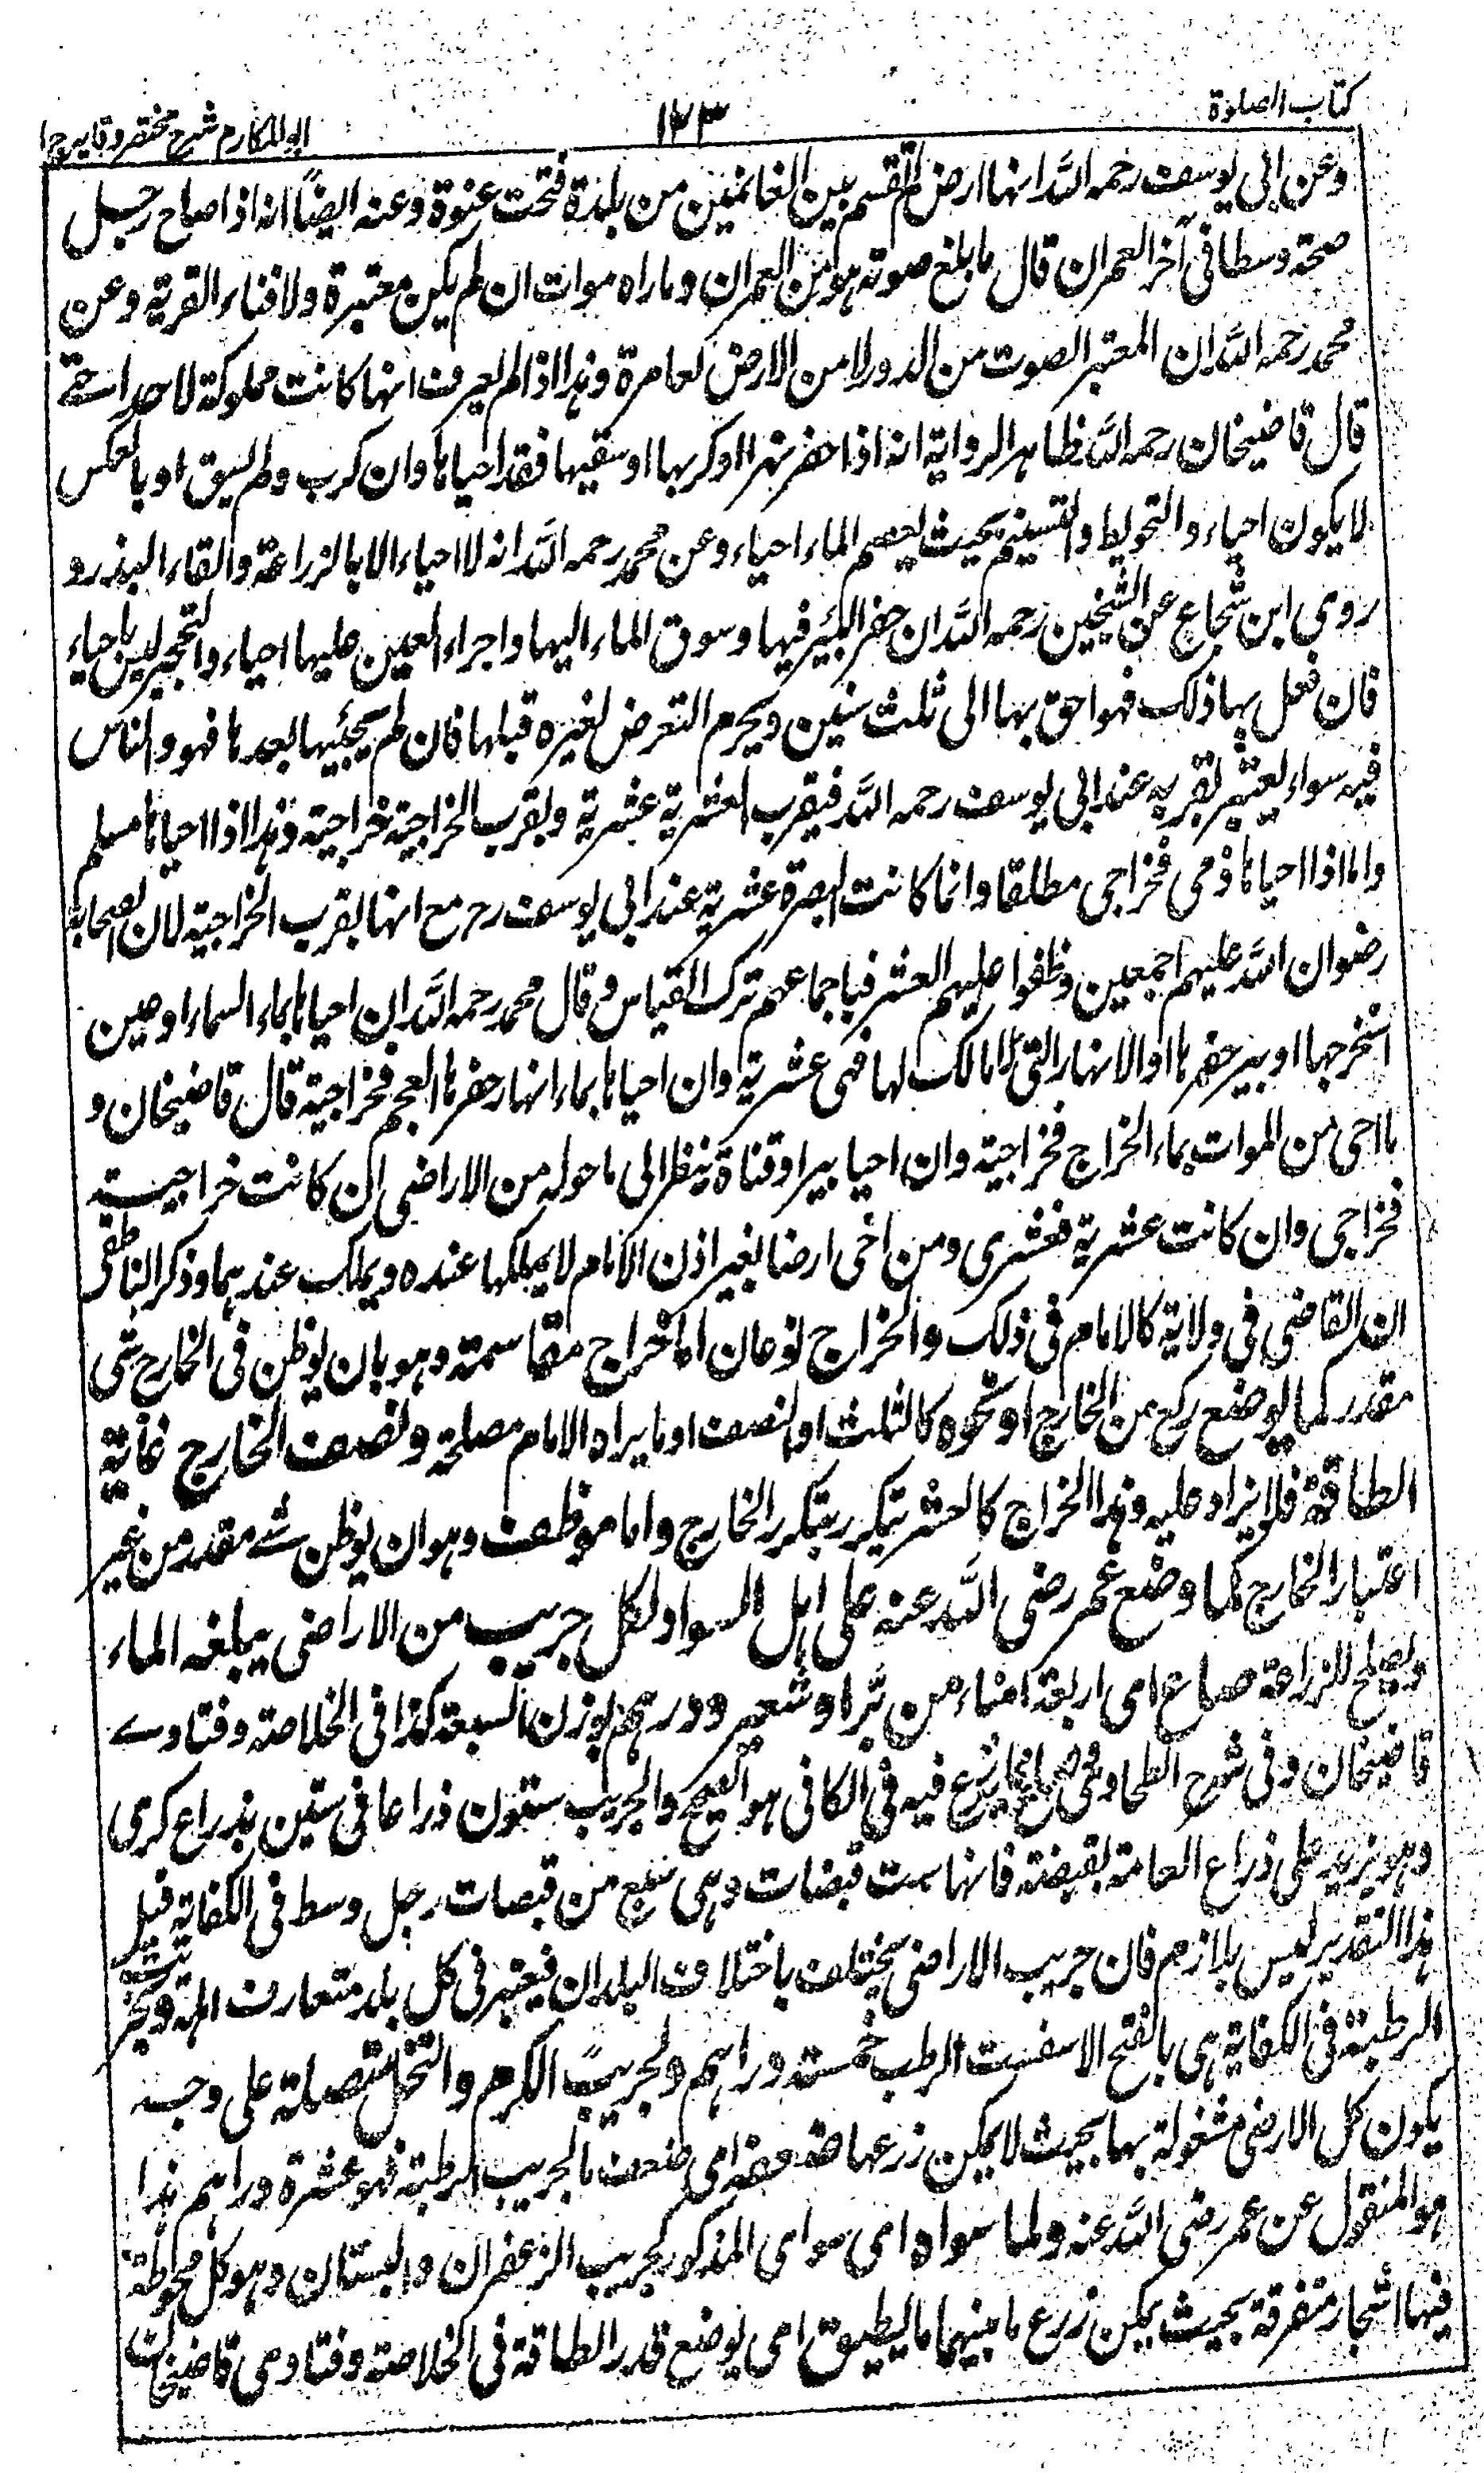 كتاب الصلوة
١٣٣
ابو المكارم شرح مختصر وقايه ج ١
وعن ابى يوسف رحمه الله انها ارض لم تقسم بين الغانمين من بلدة فتحت عنوة وعنه ايضًا انه اذا صاح رجل
صيحة وسطا فى آخر العمران قال ما بلغ صوته هو من العمران وما راه موات ان لم يكن معتبرة ولا فناء القرية وعن
محمد رحمه الله ان المعتبر الصوت من الدور لا من الارض لعامرة وهذا اذا لم يعرف انها كانت مملوكة لاحد احتى
قال قاضيخان رحمه الله ظاهر الرواية انه اذا حفر نهرا او كربها او سقيها فقد احياها وان كرب ولم يسق او بالعكس
لا يكون احياء والتحويط والتسنيم بحيث يعصم الماء احياء وعن محمد رحمه الله انه لا احياء الا بالزراعة والقاء البذر و
روى ابن شجاع عن الشيخين رحمه الله ان حفر البئر فيها وسوق الماء اليها واجراء العين عليها احياء والتحجير ليس باحياء
فان فعل بها ذلك فهو احق بها الى ثلث سنين ويحرم التعرض لغيره قبلها فان لم يحييها بعدها فهو والناس
فيه سواء يعتبر بقربه عند ابى يوسف رحمه الله فبقرب العشرية عشرية وبقرب الخراجية خراجية وهذا اذا احياها مسلم
واما اذا احياها ذمى فخراجى مطلقا وانما كانت البصرة عشرية عند ابى يوسف رح مع انها بقرب الخراجية لان الصحابة
رضوان الله عليهم اجمعين وظفوا عليهم العشر فباجماعهم ترك القياس وقال محمد رحمه الله ان احياها بماء السماء او عين
استخرجها او بير حفرها او الانهار التى لا مالك لها فهى عشرية وان احياها بماء انهار حفرها العجم فخراجية قال قاضيخان و
ما احى من الموات بماء الخراج فخراجية وان احيا بيرا وقناة ينظر الى ما حوله من الاراضى ان كانت خراجية
فخراجى وان كانت عشرية فعشرى ومن احى ارضا بغير اذن الامام لا يملكها عنده ويملك عندهما وذكر الناطفى
ان القاضى فى ولاية كالامام فى ذلك والخراج نوعان اما خراج مقاسمة وهو بان يوظف فى الخارج شى
مقدر كما يوضع ربع من الخارج او نحوه كالثلث او النصف او ما يراه الامام مصلحة ونصف الخارج غاية
الطاقة فلا يزاد عليه وهذا الخراج كالعشر يتكرر بتكرر الخارج واما موظف وهو ان يوظف شئ مقدر من غير
اعتبار الخارج كما وضع عمر رضى الله عنه على اهل السواد لكل جريب من الاراضى يبلغه الماء
ويصلح للزراعة صاع اى اربعة امناء من بُرّ او شعير ودرهم بوزن السبعة كذا فى الخلاصة وفتاوے
قاضيخان وفى شرح الطحاوى صاع مما يزرع فيه فى الكافى هو الصحيح والجريب ستون ذراعا فى ستين بذراع كرى
وهو يزيد على ذراع العامة بقبضة فانها ست قبضات وهى سبع من قبصات رجل وسط فى الكفاية قيل
هذا التقدير ليس بلازم فان جريب الاراضى يختلف باختلاف البلدان فيعتبر فى كل بلد متعارف اهله ولجريب
الرطبة فى الكفاية هى بالفتح الاسفست الرطب خمسة دراهم ولجريب الكرم والنخل متصلة على وجه
يكون كل الارض مشغولة بها بحيث لا يمكن زرعها ضعفه اى ضعف ما لجريب الرطبة فهو عشرة دراهم هذا
هو المنقول عن عمر رضى الله عنه ولما سواه اى سواى المذكور كجريب الزعفران والبستان وهو كل محوطة
فيها اشجار متفرقة بحيث يمكن زرع ما بينهما ما يطيق اى يوضع قدر الطاقة فى الخلاصة وفتاوى قاضيخان